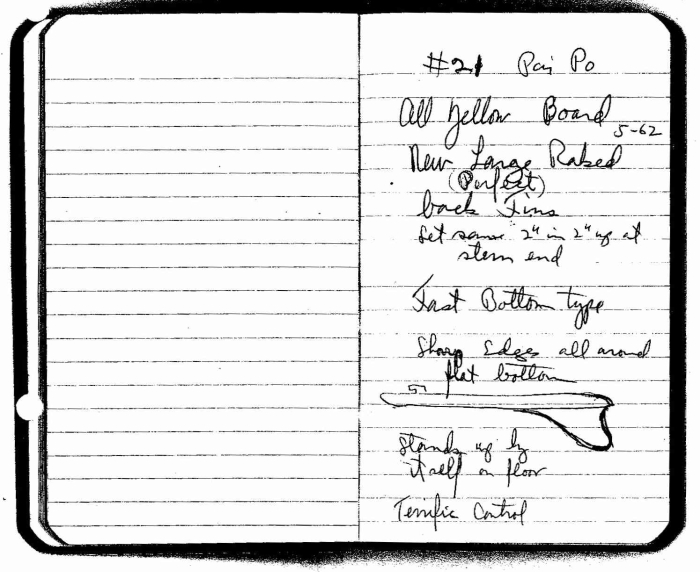 #21 Pai Po
All Yellow Board
5-62
New Large Raked
(Perfect)
back Fins
Set same 2" in 2" up at
stern end
Fast Bottom type
Sharp Edges all around
flat bottom
5"
Stands up by
itself on floor
Terrific Control